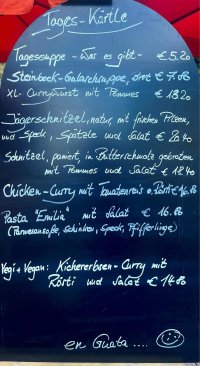 Tages-Kärtle
Tagessuppe - was es gibt - € 5.20
-Gulaschsuppe, € 7.80
XL-Currywurst mit Pommes € 13.20
Jägerschnitzel, natur, mit frischen Pilzen,
und Speck, Spätzle und Salat €
Schnitzel, paniert, in Butterschmalz gebraten
mit Pommes und Salat € 18.40
Chicken-Curry mit Tomatenreis o. Rösti € 16.80
Pasta "Emilia" mit Salat € 16.80
(Parmesansoße, Schinken, Speck, Pfifferlinge)
Vegi + Vegan: Kichererbsen-Curry mit
Rösti und Salat € 14.80
en Guata ....